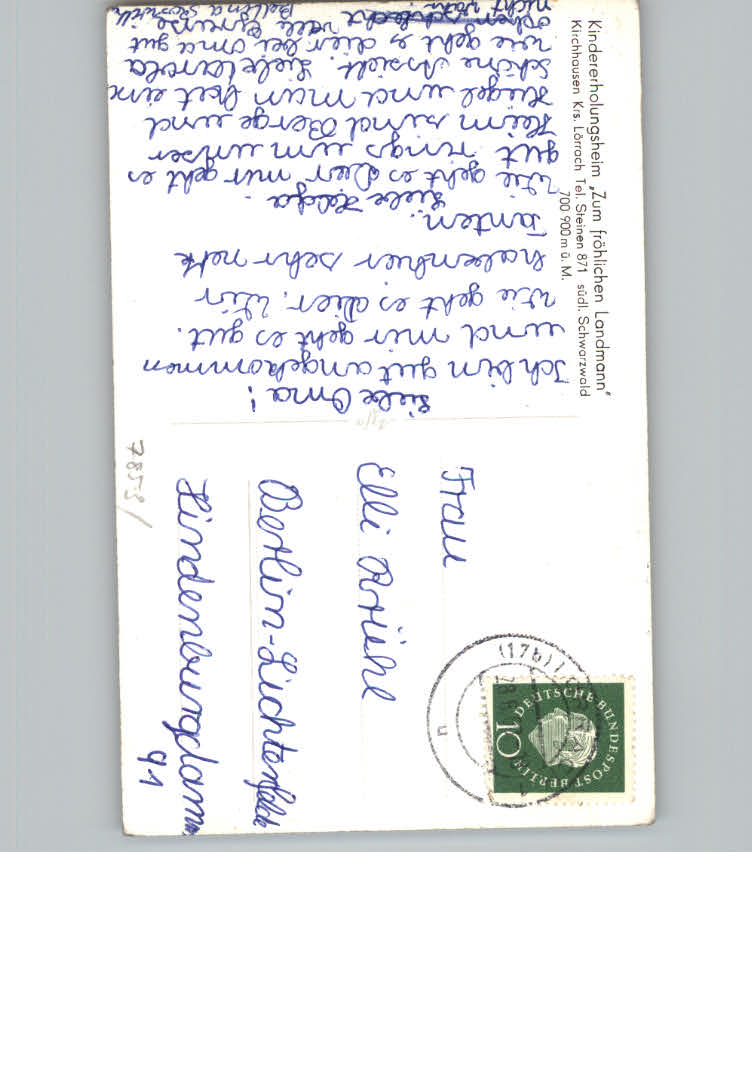 Kindererholungsheim „Zum fröhlichen Landmann"
Kirchhausen Krs. Lörrach Tel. Steinen 871 südl. Schwarzwald
700 900 m ü. M.
Liebe Oma!
Ich bin gut angekommen
und mir geht es gut.
Wie geht es dier. Wir
haben hier sehr nette
Tanten.
Liebe Helga.
Wie geht es dier mir geht es
gut rings um unser
Heim sind Berge und
Hügel und man hat eine
schöne Assicht. Liebe Carola
wie geht es dier bei Oma gut
oder schlecht viele Grüsse
nicht wahr. Bettina
7853/
Frau
Elli Brühl
Berlin-Lichterfelde
Hindenburgdamm
91
(17b)
DEUTSCHE BUNDESPOST BERLIN
10
n